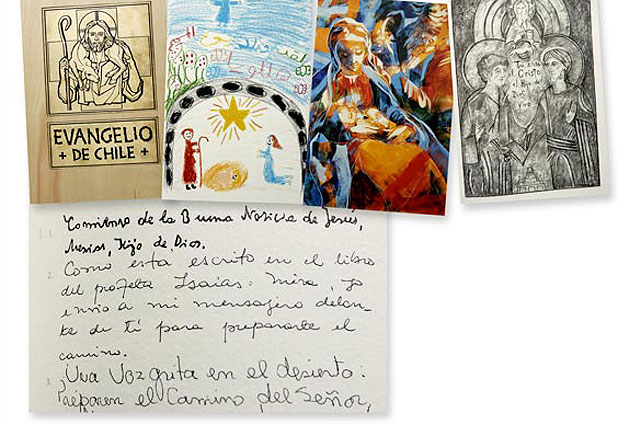 EVANGELIO
+ DE CHILE +
el Cristo
el Hijo
1.1. Comienzo de la Buena Noticia de Jesús,
Mesias, Hijo de Dios.
2 Como esta escrito en el libro
del profeta Isaias: mira, yo
envio a mi mensajero delan-
te de ti para prepararte el
camino.
3 Una Voz grita en el desierto:
Preparen el Camino del Señor,